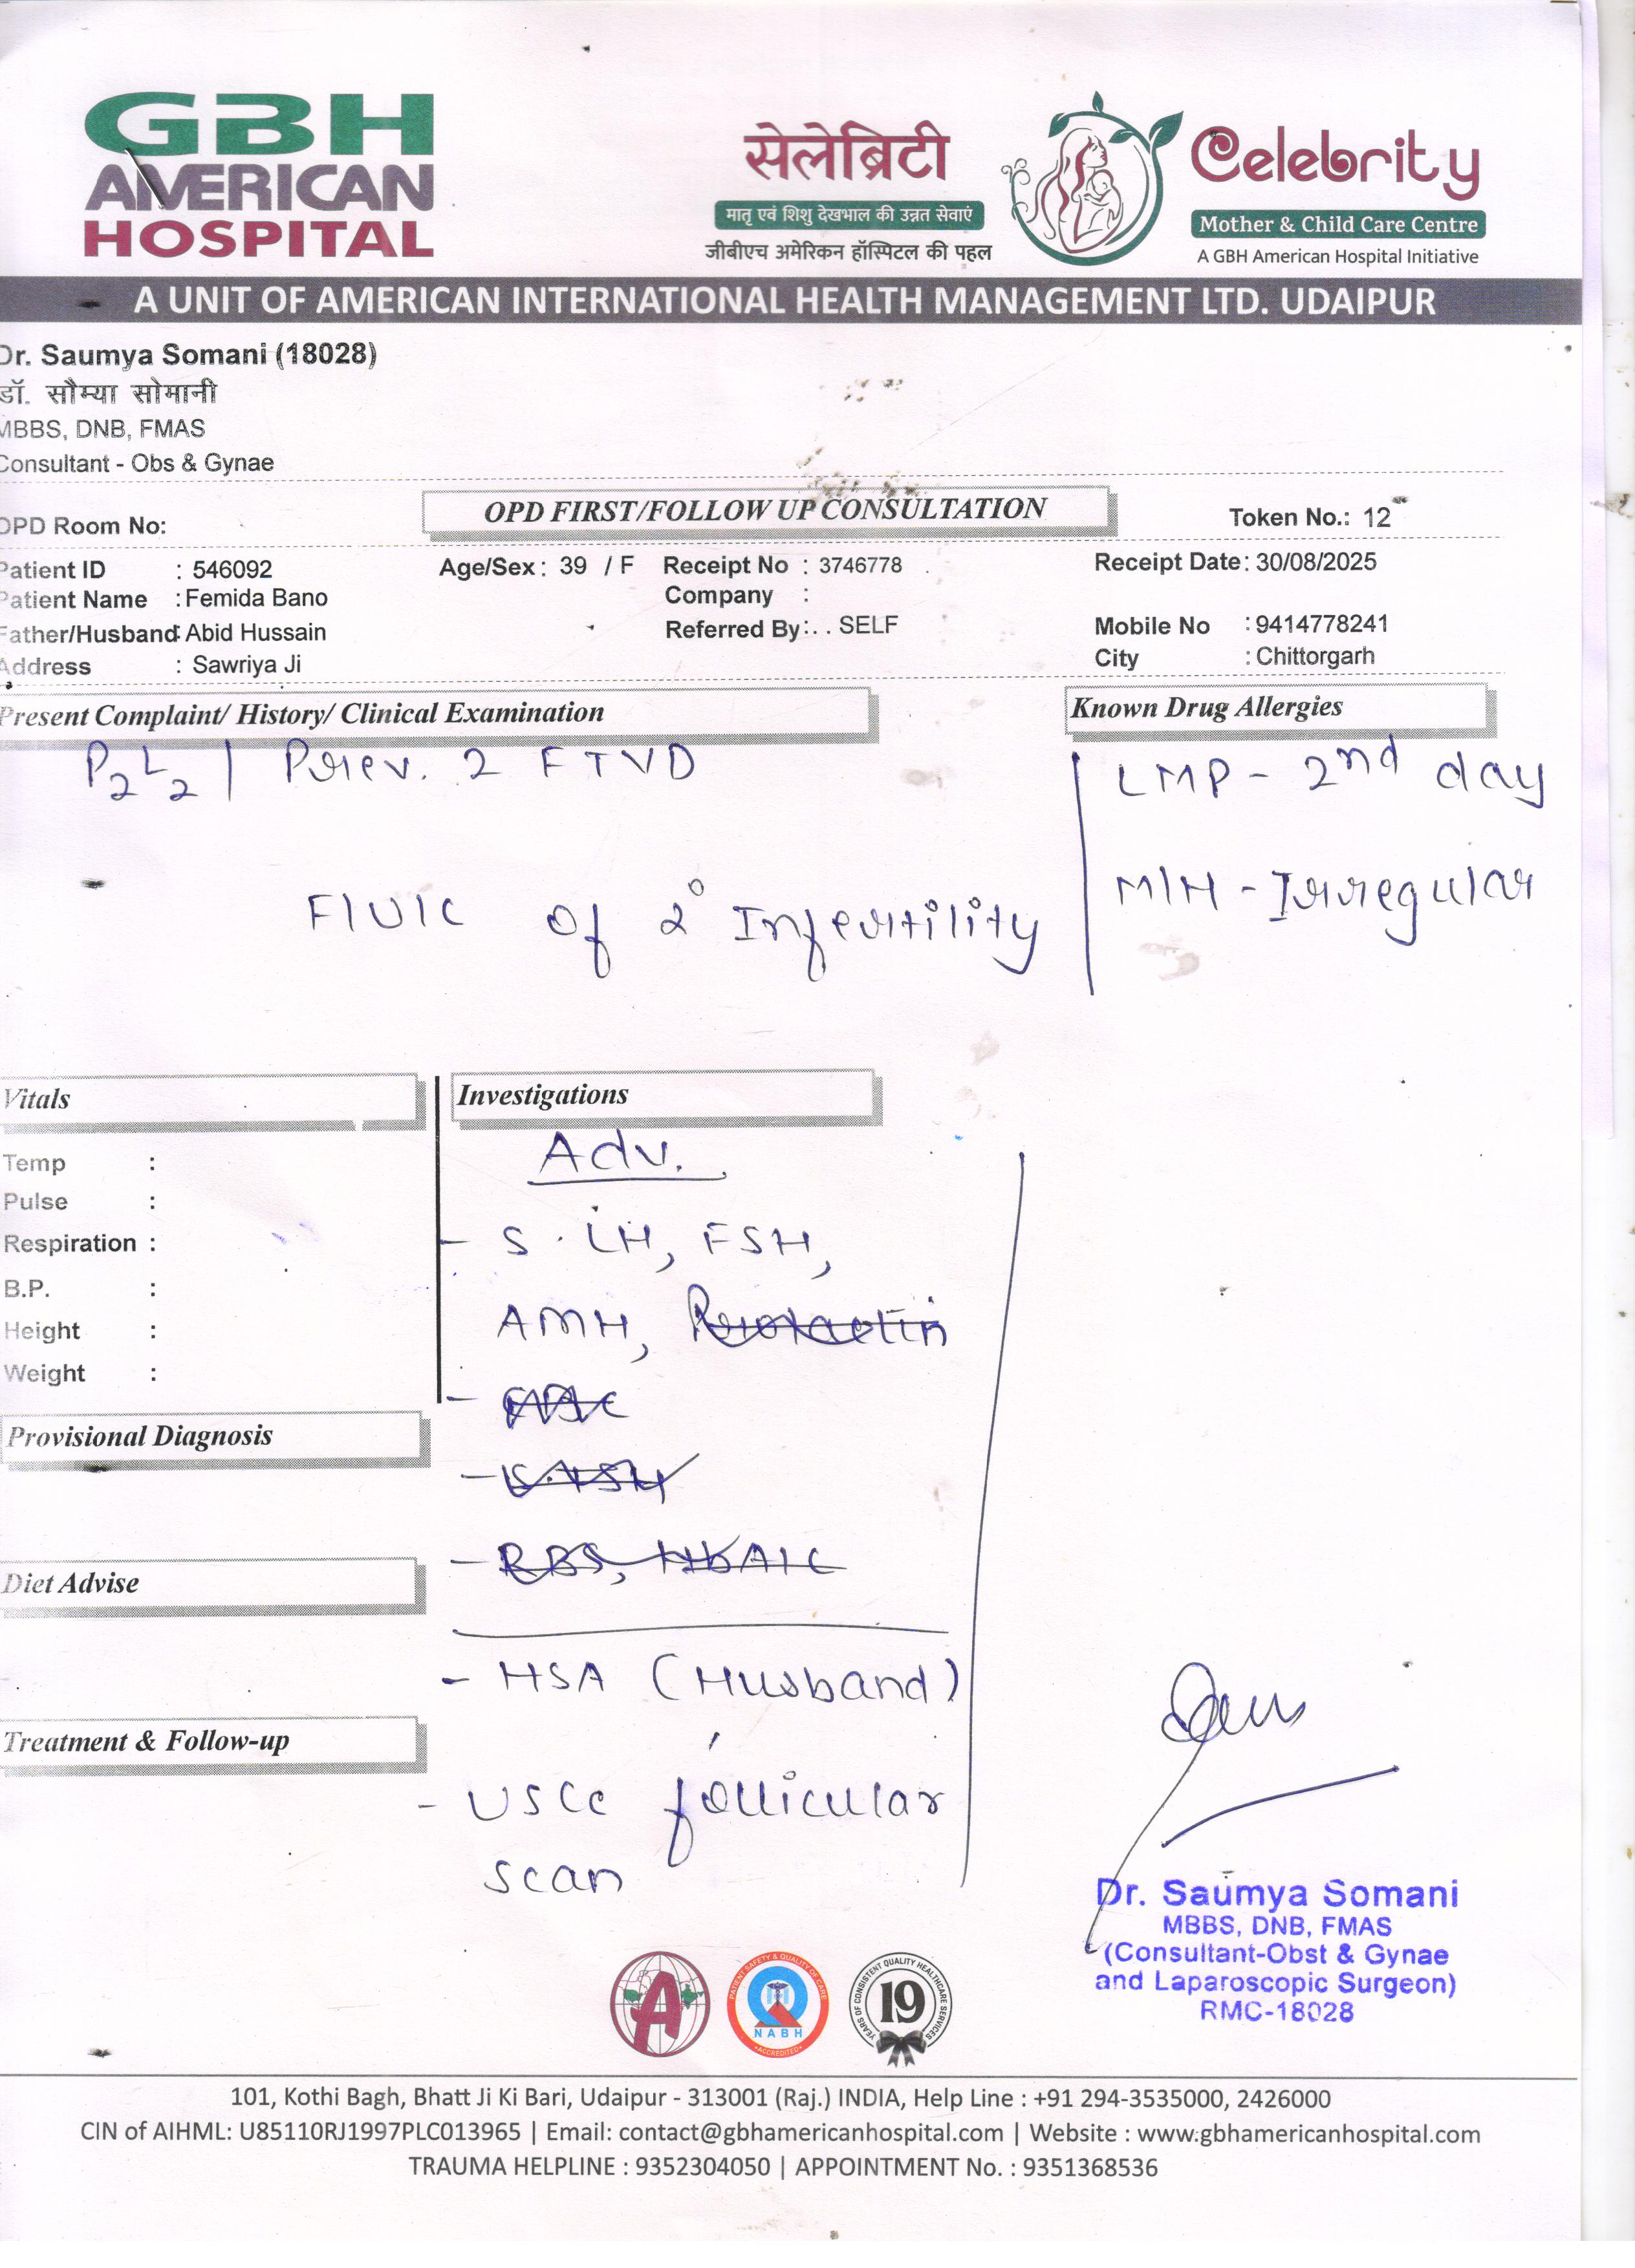 GBH
AMERICAN
HOSPITAL
सेलेब्रिटी
मातृ एवं शिशु देखभाल की उन्नत सेवाएं
जीबीएच अमेरिकन हॉस्पिटल की पहल
Celebrity
Mother & Child Care Centre
A GBH American Hospital Initiative
A UNIT OF AMERICAN INTERNATIONAL HEALTH MANAGEMENT LTD. UDAIPUR
Dr. Saumya Somani (18028)
डॉ. सौम्या सोमानी
MBBS, DNB, FMAS
Consultant - Obs & Gynae
OPD Room No:
OPD FIRST/FOLLOW UP CONSULTATION
Token No.: 12
Patient ID : 546092 Age/Sex : 39 / F Receipt No : 3746778 Receipt Date: 30/08/2025
Patient Name : Femida Bano Company :
Father/Husband: Abid Hussain Referred By:. . SELF Mobile No : 9414778241
Address : Sawriya Ji City : Chittorgarh
Present Complaint/ History/ Clinical Examination
Known Drug Allergies
P2L2 | Prev. 2 FTVD
LMP - 2nd day
M/H - Irregular
F/U/C of 2° Infertility
Vitals
Temp :
Pulse :
Respiration :
B.P. :
Height :
Weight :
Provisional Diagnosis
Diet Advise
Treatment & Follow-up
Investigations
Adv.
- S. LH, FSH,
AMH, Prolactin
- S. TSH
- RBS, HbA1C
- HSA (Husband)
- USG follicular
scan
Dr. Saumya Somani
MBBS, DNB, FMAS
(Consultant-Obst & Gynae
and Laparoscopic Surgeon)
RMC-18028
A
PATIENT SAFETY & QUALITY OF CARE
NABH
ACCREDITED
19
YEARS OF CONSISTENT QUALITY HEALTHCARE SERVICES
101, Kothi Bagh, Bhatt Ji Ki Bari, Udaipur - 313001 (Raj.) INDIA, Help Line : +91 294-3535000, 2426000
CIN of AIHML: U85110RJ1997PLC013965 | Email: contact@gbhamericanhospital.com | Website : www.gbhamericanhospital.com
TRAUMA HELPLINE : 9352304050 | APPOINTMENT No. : 9351368536